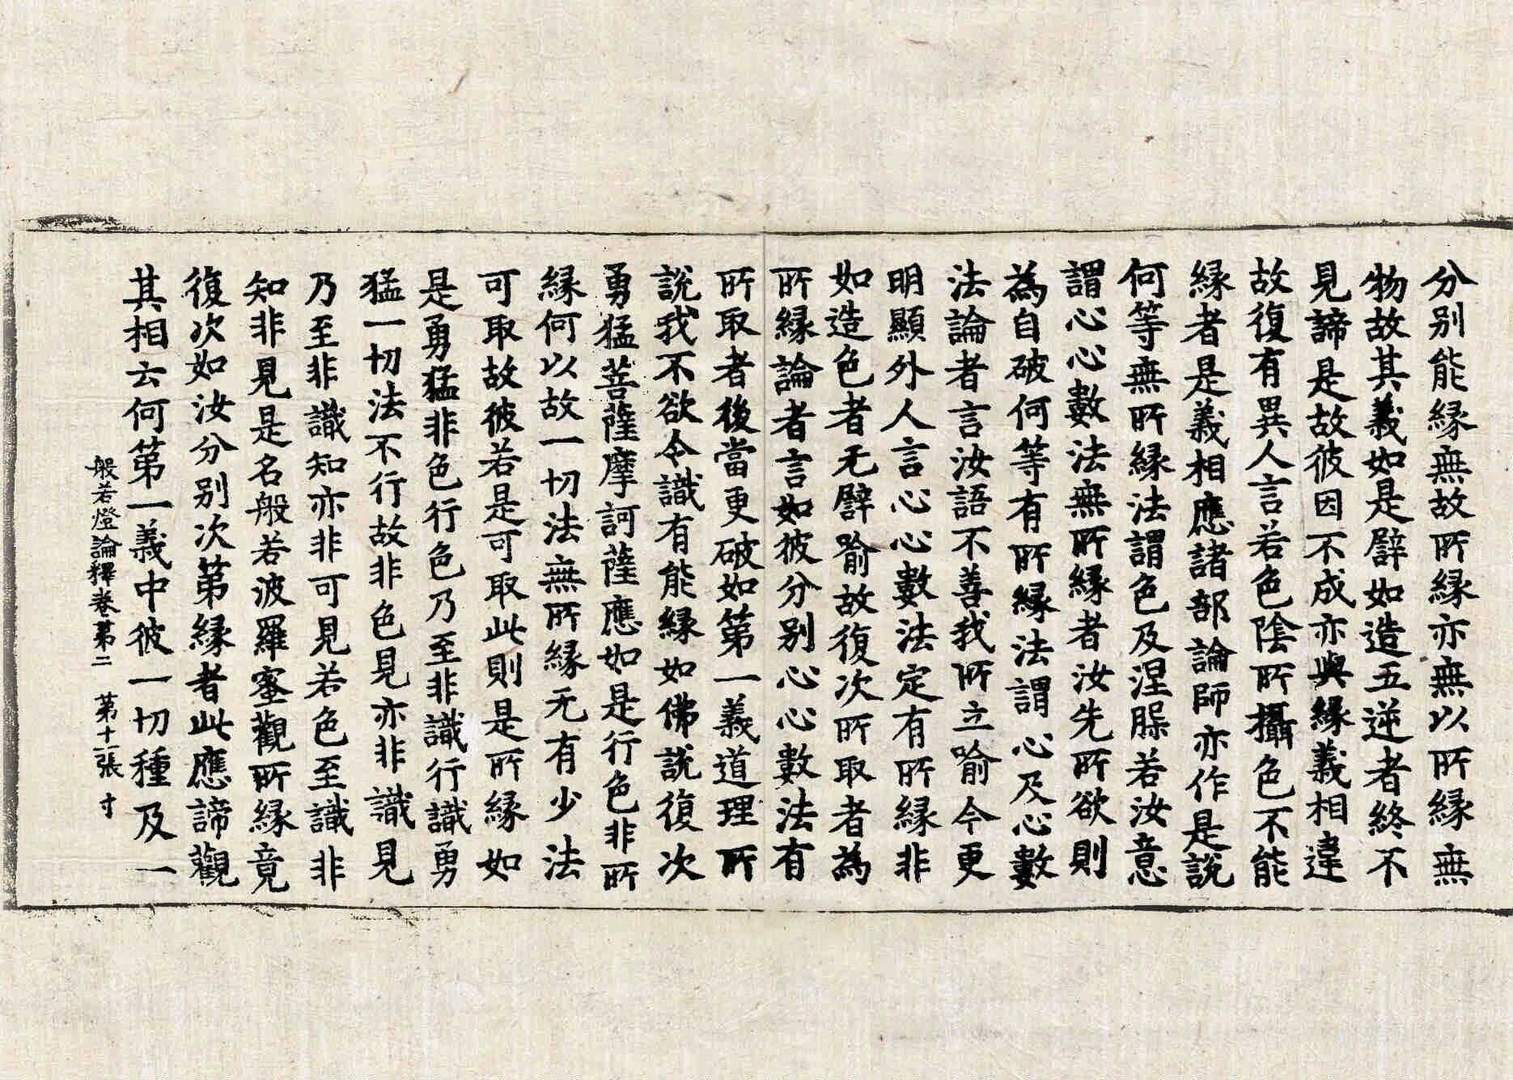 分別能縁無故所縁亦無以所縁無
物故其義如是譬如造五逆者終不
見諦是故彼因不成亦與縁義相違
故復有異人言若色陰所攝色不能
縁者是義相應諸部論師亦作是說
何等無所縁法謂色及涅槃若汝意
謂心心數法無所縁者汝先所欲則
為自破何等有所縁法謂心及心數
法論者言汝語不善我所立喻今更
明顯外人言心心數法定有所縁非
如造色者无譬喻故復次所取者為
所縁論者言如彼分別心心數法有
所取者後當更破如第一義道理所
說我不欲令識有能縁如佛說復次
勇猛菩薩摩訶薩應如是行色非所
縁何以故一切法無所縁无有少法
可取故彼若是可取此則是所縁如
是勇猛非色行色乃至非識行識勇
猛一切法不行故非色見亦非識見
乃至非識知亦非可見若色至識非
知非見是名般若波羅蜜觀所縁竟
復次如汝分別次第縁者此應諦觀
其相云何第一義中彼一切種及一
般若燈論釋卷第二 第十一張 寸